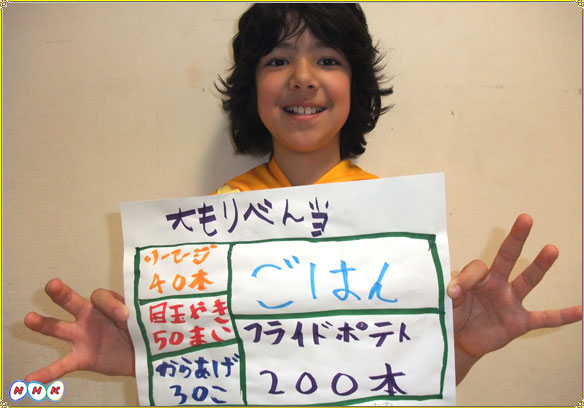 大もりべん当
ソーセージ
40本
目玉やき
50まい
からあげ
30こ
ごはん
フライドポテト
200本
NHK